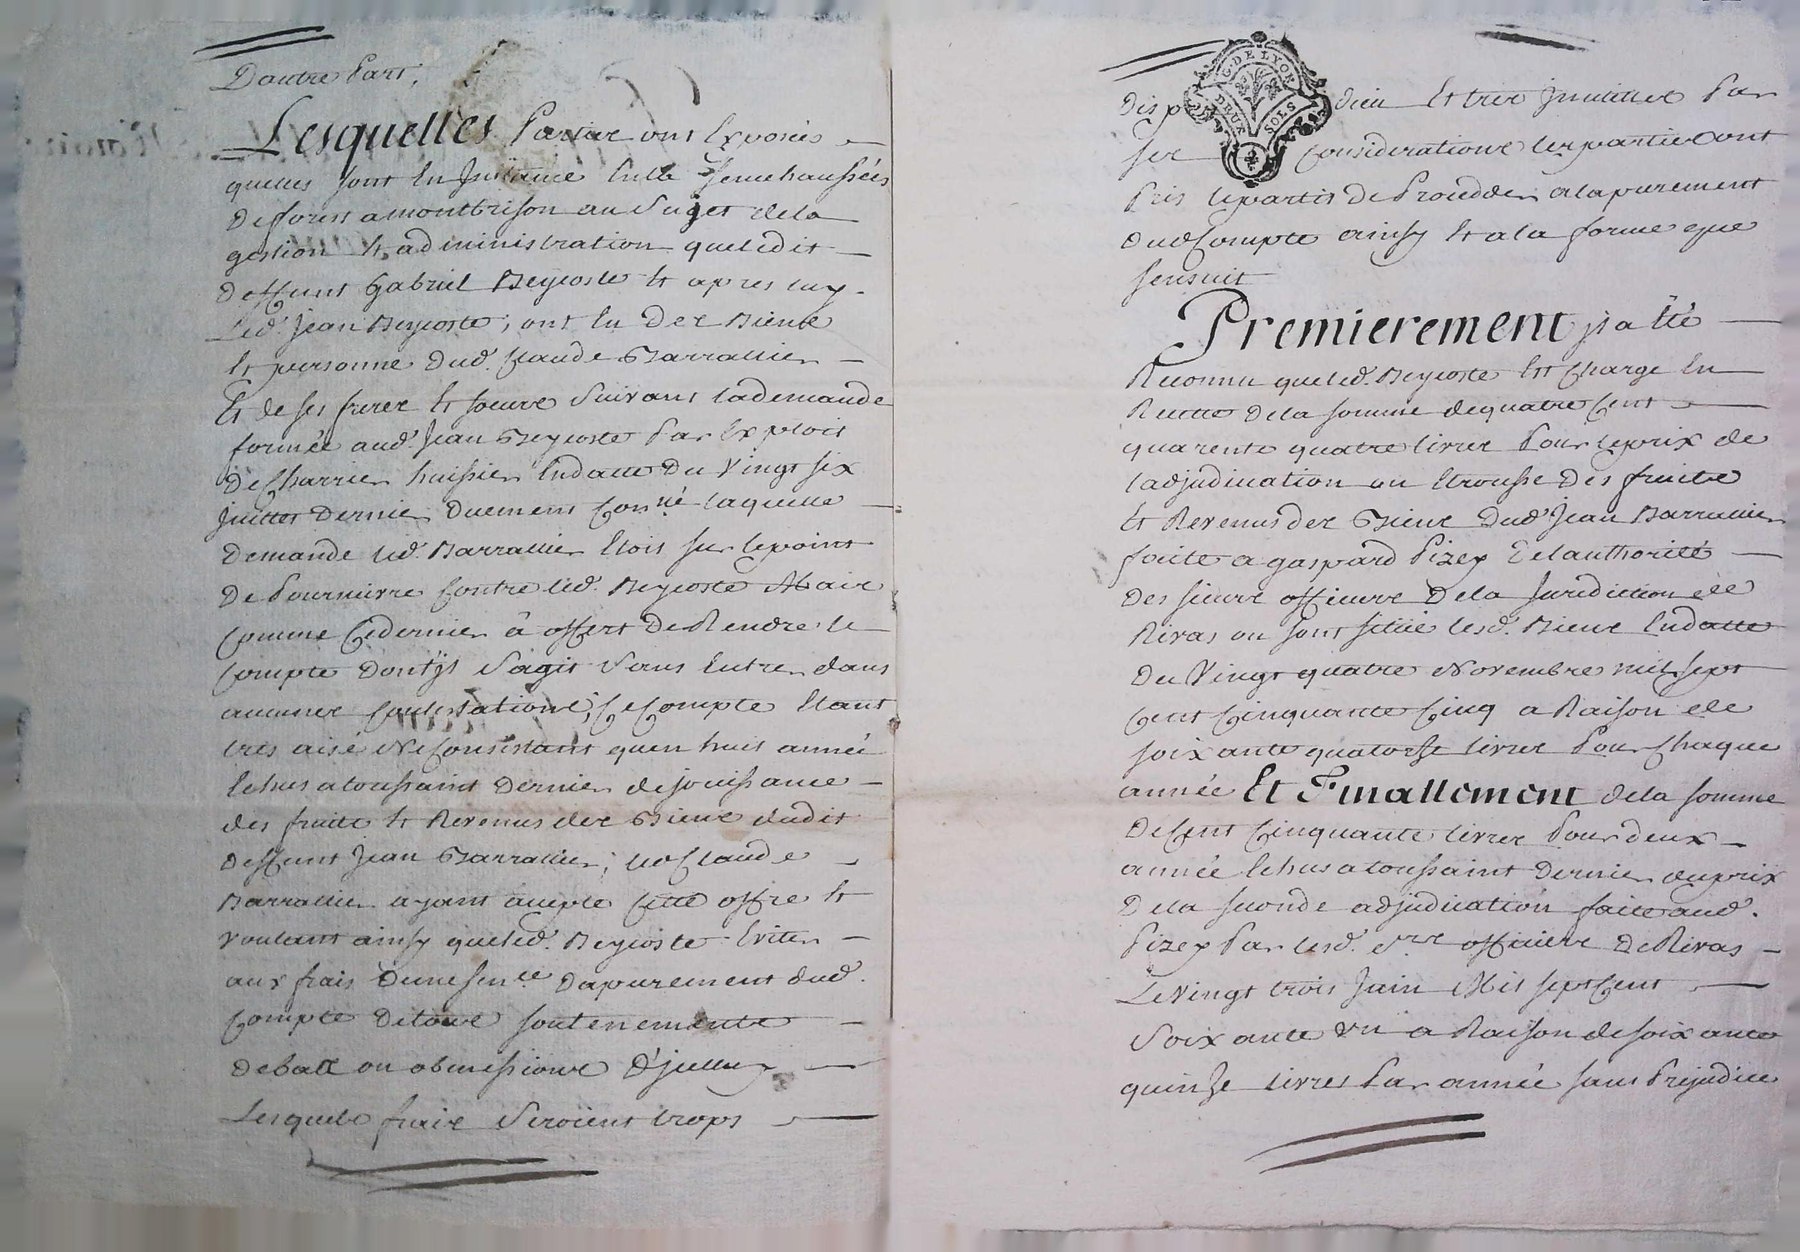 Dautre part,
Lesquelles Parties ont Exposées
quelles sont En Instance En la Sennehaussées
De forest a montbrison au Sujet de la
gestion Et administration queledit
Deffunt Gabriel Beycoste Et apres luy
Led. Jean Beycoste, ont Eu Des Biens
Et personne Dud. Claude Barrallier
Et de ses freres Et soeurs Suivant lademande
formée aud. Jean Beycoste Par Exploit
De Charrier huissier Endatte Du Vingt six
Juillet Dernier Duement Con.né laquelle
Demande led. Barrallier Etoit sur lepoint
De Poursuivre Contre led. Beycoste Mais
Comme Cedernier à offert De Rendre le
Compte Dontÿl Sagit Sans Entrer dans
aucunes Contestations, Ce Compte Etant
tres aisé Ne Consistant quen huit année
Echus a toussaint Dernier dejouissance
des fruits Et Revenus des Biens dudit
Deffunt Jean Barrallier; led Claude
Barrallier ayant accepté Cette offre Et
voulant ainsy queled. Beycoste Eviter
aux frais Dune sen.ce Dapurement dud.
Compte Detous soutenements
debats ou obmissions D'jcelluy
Lesquels frais Seroient trops
G. DE LYON
DEUX SOLS
disp dieu Et tres Jnutilles Par
ses Considerations les parties ont
Pris lepartis de Procedder alapurement
Dud Compte ainsy Et a la forme que
sensuit
Premierement jl a Eté
Reconnu queled. Beycoste Est Chargé En
Recette Dela somme dequatre Cent
quarente quatre livres Pour leprix de
ladjudication ou Etrousse Des fruits
Et Revenus des Biens Dud. Jean Barrallier
faite a gaspard Pizey De lauthorité
Des sieurs officiers De la Juridiction de
Rivas ou sont sitüé lesd. Biens Endatte
Du Vingt quatre Novembre mil sept
Cent Cinquante Cinq a Raison de
soixante quatorze livres Pour Chaque
année Et Finallement dela somme
DeCent Cinquante livres Pour deux
année Echus a toussaint Dernier duprix
Dela seconde adjudication faite aud.
Pizey Par lesd. officiers De Rivas
Le Vingt trois Juin Mil sept Cent
Soixante un a Raison de soixante
quinze livres Par année sans Prejudice